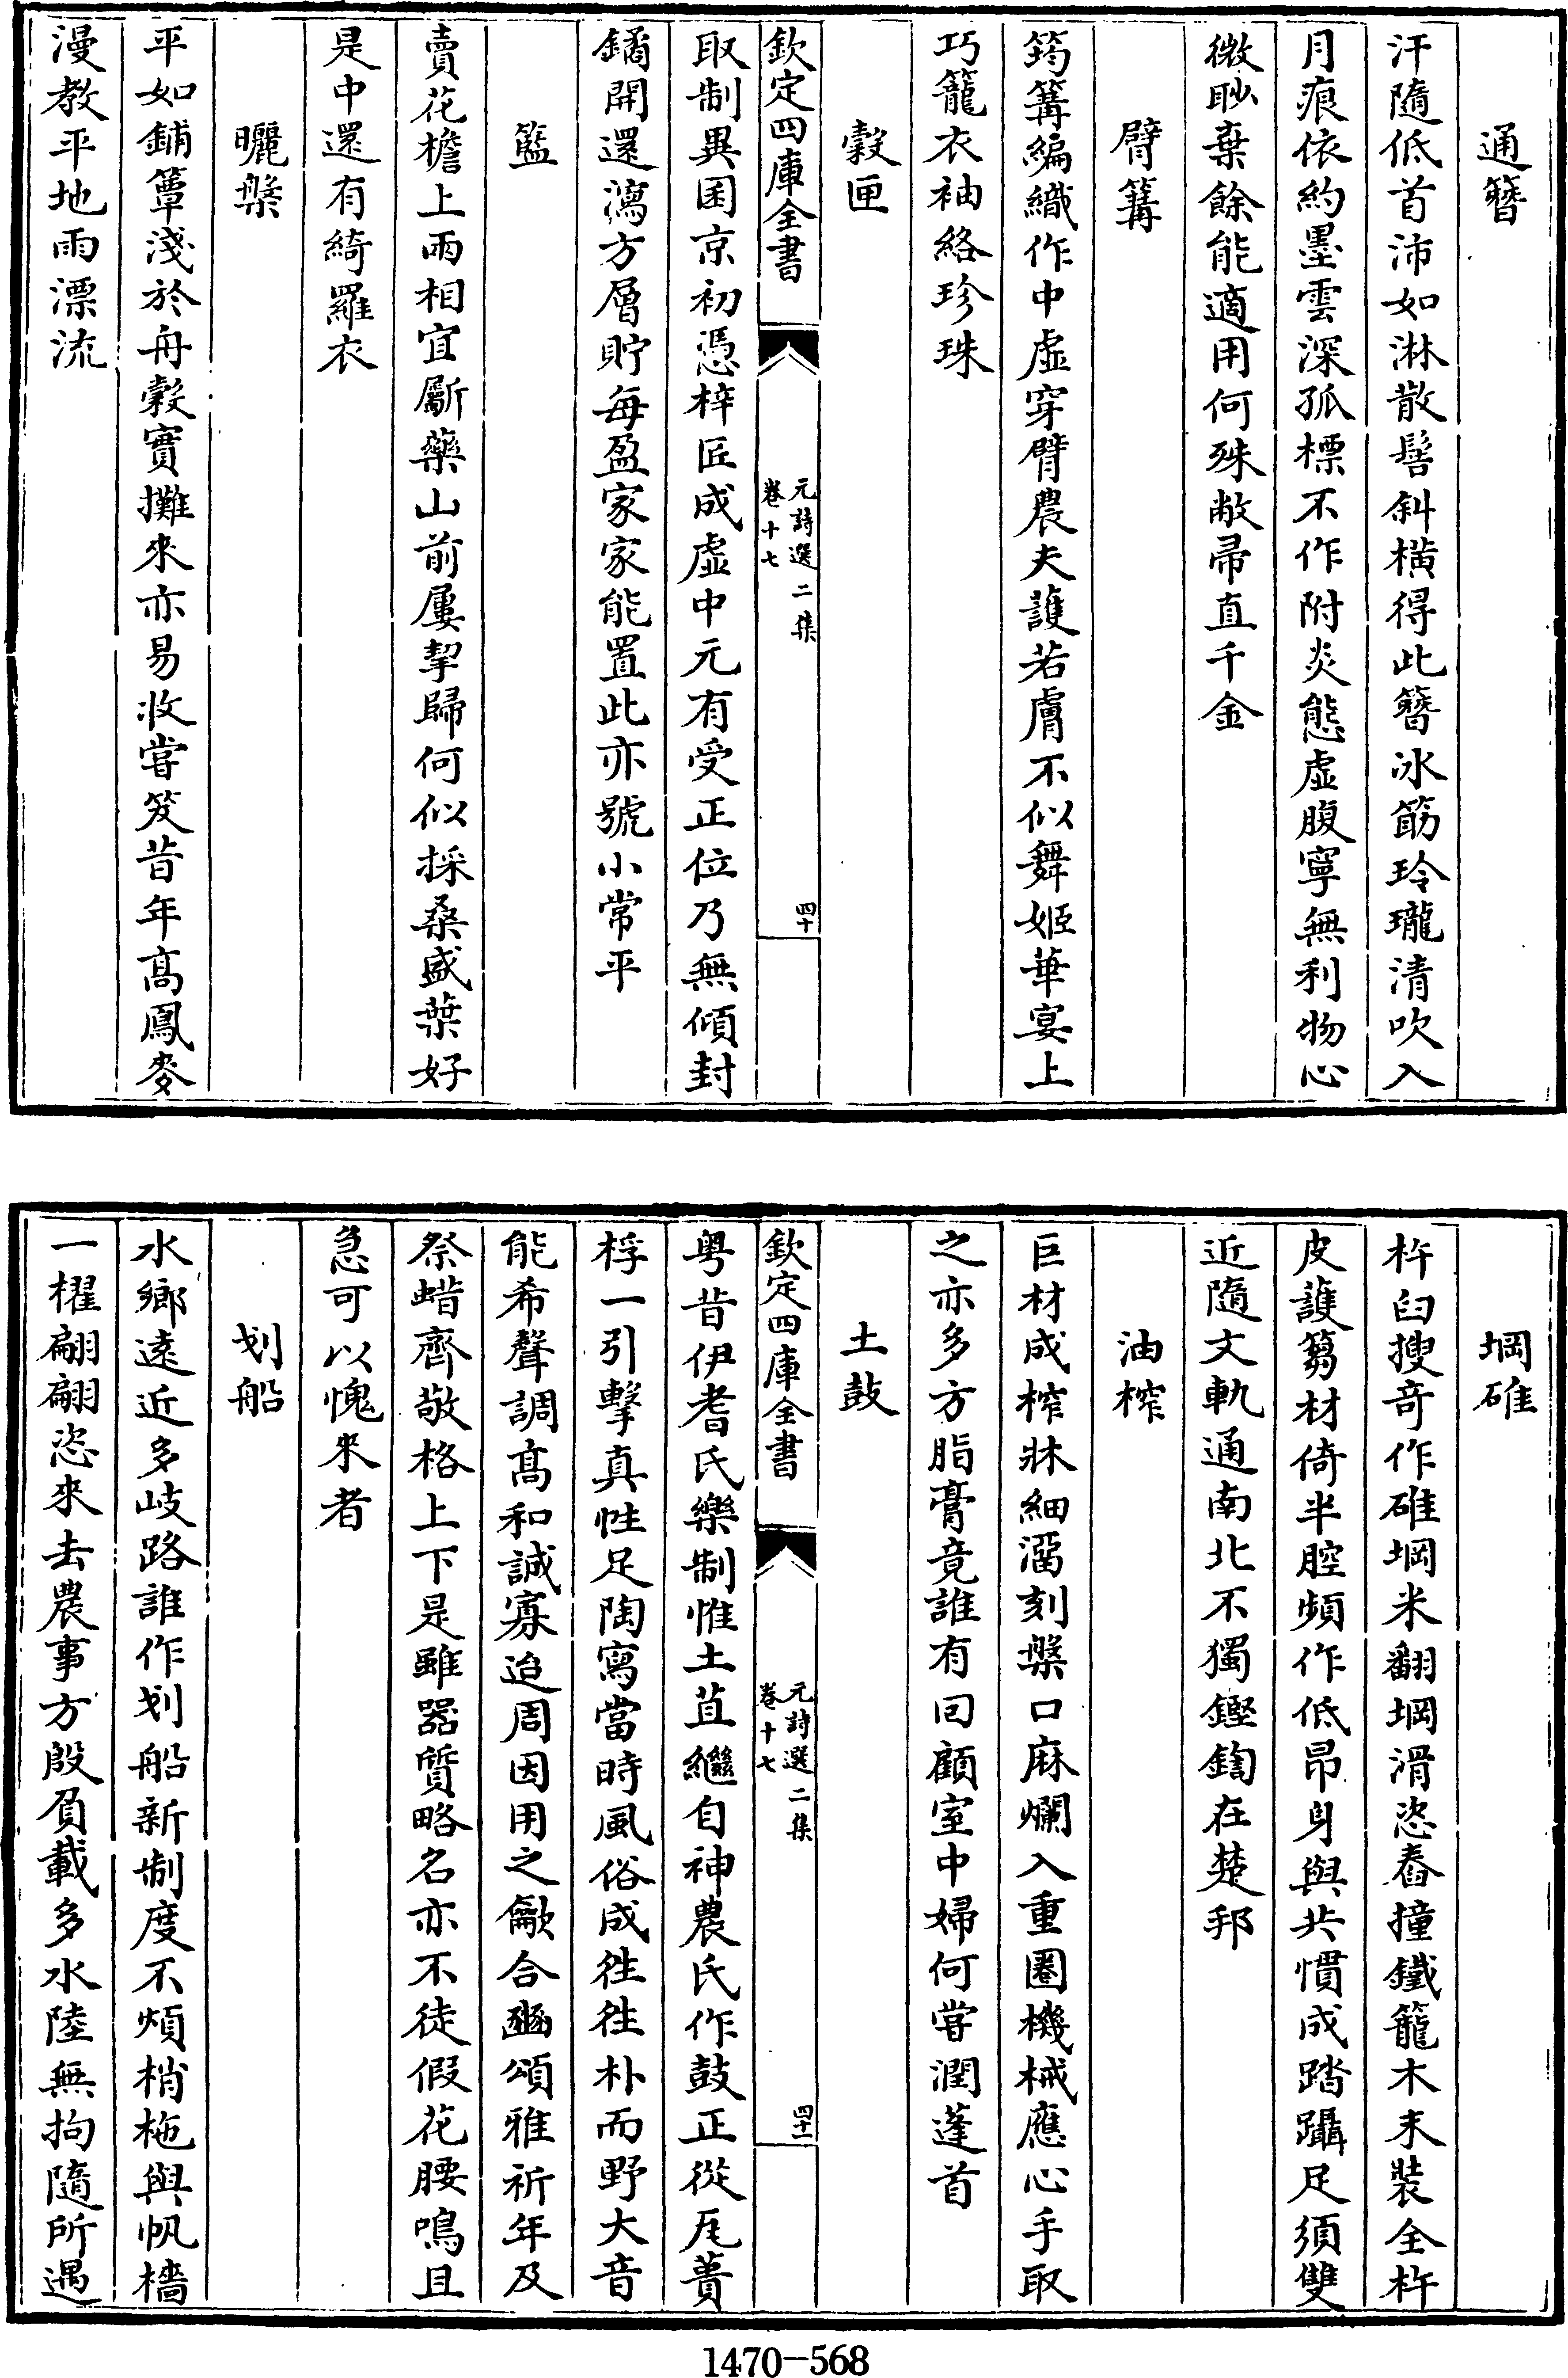 通簪
汗隨低首沛如淋散髻斜橫得此簪冰筯玲瓏清吹入
月痕依約墨雲深孤標不作附炎態虛腹寧無利物心
微眇棄餘能適用何殊敝帚直千金
臂篝
筠篝編織作中虛穿臂農夫護若膚不似舞姬華宴上
巧籠衣袖絡珍珠
穀匣
欽定四庫全書
元詩選二集
卷十七
四十
取制異囷京初憑梓匠成虛中元有受正位乃無傾封
鐍開還瀉方層貯每盈家家能置此亦號小常平
籃
賣花檐上兩相宜斸藥山前屢挈歸何似採桑盛葉好
是中還有綺羅衣
曬槃
平如鋪簟淺於舟穀實攤來亦易收嘗笑昔年高鳳麥
漫教平地雨漂流
堈碓
杵臼搜奇作碓堈米翻堈滑恣舂撞鐵籠木末裝全杵
皮護芻材倚半腔頻作低昂身與共慣成踏躡足須雙
近隨文軌通南北不獨鏗鍧在楚邦
油榨
巨材成榨牀細溜刻槃口麻爛入重圈機械應心手取
之亦多方脂膏竟誰有回顧室中婦何嘗潤蓬首
土鼓
欽定四庫全書
元詩選二集
卷十七
四十一
粤昔伊耆氏樂制惟土苴繼自神農氏作鼓正從瓦蕢
桴一引擊真性足陶寫當時風俗成徃徃朴而野大音
能希聲調高和誠寡迨周因用之龡合豳頌雅祈年及
祭蜡齊敬格上下是雖器質略名亦不徒假花腰鳴且
急可以愧來者
划船
水鄉遠近多岐路誰作划船新制度不煩梢柂與帆檣
一櫂翩翩恣來去農事方殷負載多水陸無拘隨所遇
1470-568